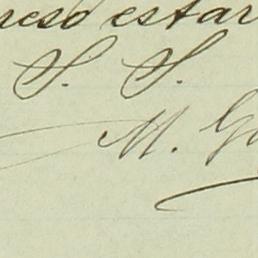 reso estar
S. S.
M. G